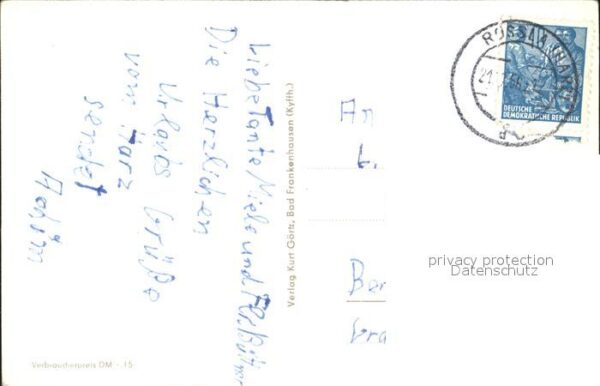 Liebe Tante Miele und
Die Herzlichen
Urlaubs Grüße
vom Harz
sendet
Achim
Verlag Kurt Görtz, Bad Frankenhausen (Kyffh.)
Verbraucherpreis DM -.15
An
DEUTSCHE
DEMOKRATISCHE REPUBLIK
privacy protection
Datenschutz